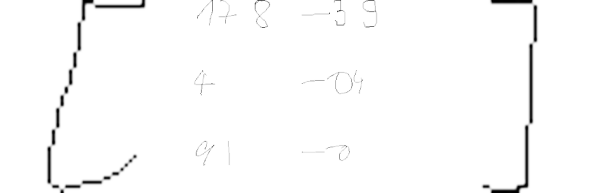 178 -39
4 -04
91 -0